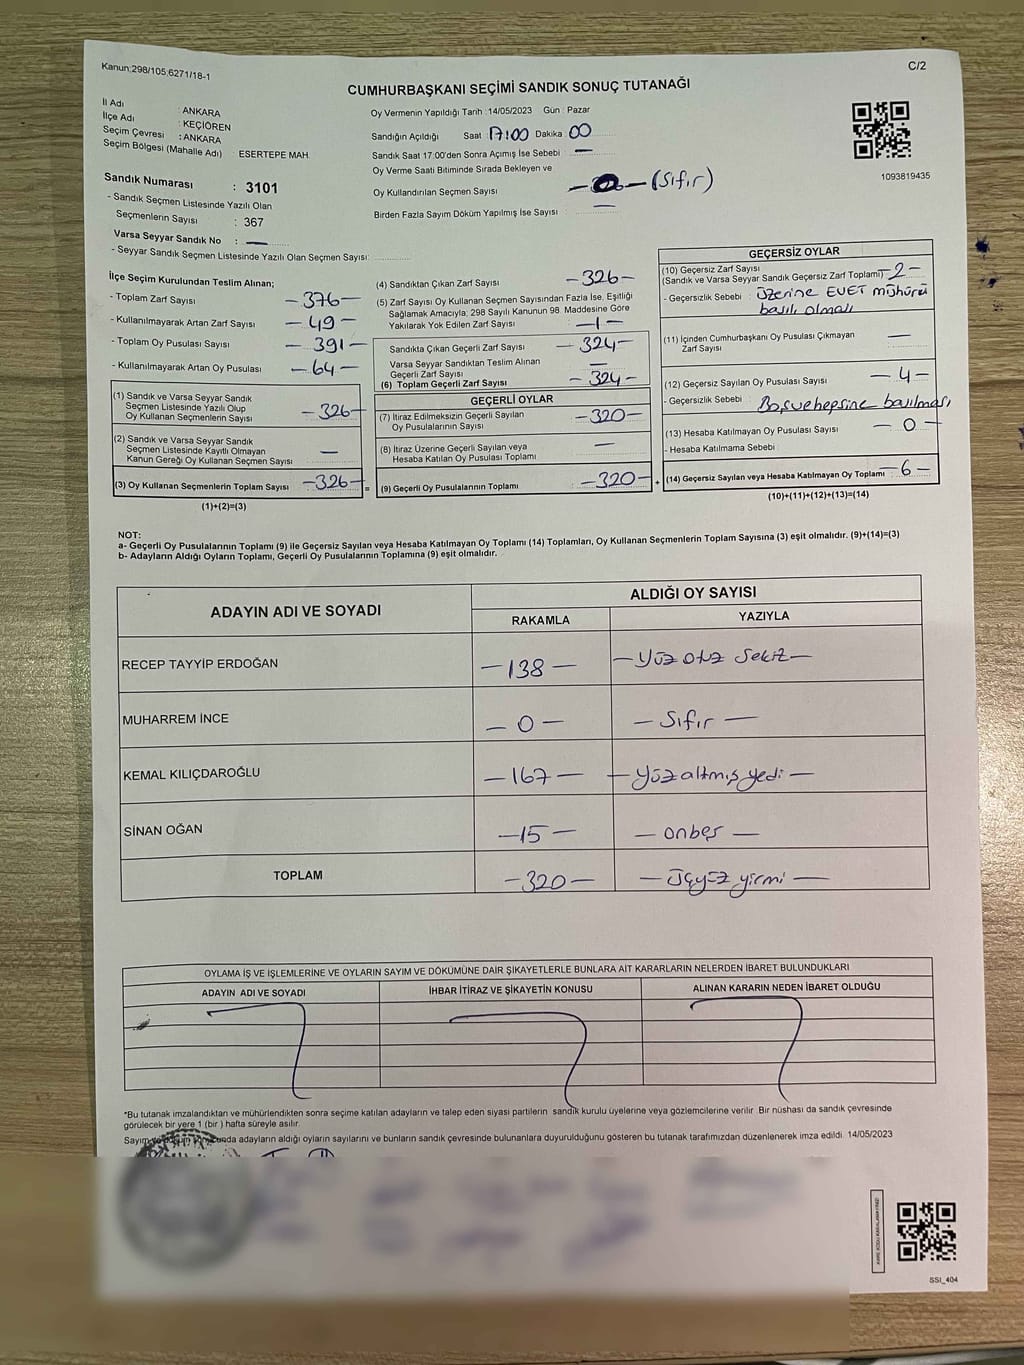 Kanun:298/105;6271/18-1
C/2
CUMHURBAŞKANI SEÇİMİ SANDIK SONUÇ TUTANAĞI
İl Adı : ANKARA
İlçe Adı : KEÇİÖREN
Seçim Çevresi : ANKARA
Seçim Bölgesi (Mahalle Adı) ESERTEPE MAH.
Sandık Numarası : 3101
- Sandık Seçmen Listesinde Yazılı Olan
Seçmenlerin Sayısı : 367
Varsa Seyyar Sandık No : —
- Seyyar Sandık Seçmen Listesinde Yazılı Olan Seçmen Sayısı:
Oy Vermenin Yapıldığı Tarih :14/05/2023 Gün : Pazar
Sandığın Açıldığı Saat : 17:00 Dakika 00
Sandık Saat 17:00'den Sonra Açımış İse Sebebi : —
Oy Verme Saati Bitiminde Sırada Bekleyen ve
Oy Kullandırılan Seçmen Sayısı — 0 — (Sıfır)
Birden Fazla Sayım Döküm Yapılmış İse Sayısı : —
1093819435
İlçe Seçim Kurulundan Teslim Alınan;
- Toplam Zarf Sayısı -376-
- Kullanılmayarak Artan Zarf Sayısı -49-
- Toplam Oy Pusulası Sayısı -391-
- Kullanılmayarak Artan Oy Pusulası -64-
(1) Sandık ve Varsa Seyyar Sandık
Seçmen Listesinde Yazılı Olup
Oy Kullanan Seçmenlerin Sayısı -326-
(2) Sandık ve Varsa Seyyar Sandık
Seçmen Listesinde Kayıtlı Olmayan
Kanun Gereği Oy Kullanan Seçmen Sayısı —
(3) Oy Kullanan Seçmenlerin Toplam Sayısı -326-
(1)+(2)=(3)
(4) Sandıktan Çıkan Zarf Sayısı -326-
(5) Zarf Sayısı Oy Kullanan Seçmen Sayısından Fazla İse, Eşitliği
Sağlamak Amacıyla; 298 Sayılı Kanunun 98. Maddesine Göre
Yakılarak Yok Edilen Zarf Sayısı
Sandıkta Çıkan Geçerli Zarf Sayısı -324-
Varsa Seyyar Sandıktan Teslim Alınan
Geçerli Zarf Sayısı
(6) Toplam Geçerli Zarf Sayısı -324-
GEÇERLİ OYLAR
(7) İtiraz Edilmeksizin Geçerli Sayılan
Oy Pusulalarının Sayısı -320-
(8) İtiraz Üzerine Geçerli Sayılan veya
Hesaba Katılan Oy Pusulası Toplamı —
(9) Geçerli Oy Pusulalarının Toplamı -320-
GEÇERSİZ OYLAR
(10) Geçersiz Zarf Sayısı
(Sandık ve Varsa Seyyar Sandık Geçersiz Zarf Toplamı) -2-
- Geçersizlik Sebebi : Üzerine EVET mühürü
basılı olmalı
(11) İçinden Cumhurbaşkanı Oy Pusulası Çıkmayan
Zarf Sayısı —
(12) Geçersiz Sayılan Oy Pusulası Sayısı -4-
- Geçersizlik Sebebi : Boş ve hepsine basılması
(13) Hesaba Katılmayan Oy Pusulası Sayısı -0-
- Hesaba Katılmama Sebebi
(14) Geçersiz Sayılan veya Hesaba Katılmayan Oy Toplamı -6-
(10)+(11)+(12)+(13)=(14)
NOT:
a- Geçerli Oy Pusulalarının Toplamı (9) ile Geçersiz Sayılan veya Hesaba Katılmayan Oy Toplamı (14) Toplamları, Oy Kullanan Seçmenlerin Toplam Sayısına (3) eşit olmalıdır. (9)+(14)=(3)
b- Adayların Aldığı Oyların Toplamı, Geçerli Oy Pusulalarının Toplamına (9) eşit olmalıdır.
ADAYIN ADI VE SOYADI ALDIĞI OY SAYISI
RAKAMLA YAZIYLA
RECEP TAYYİP ERDOĞAN -138- -Yüz otuz sekiz-
MUHARREM İNCE -0- -Sıfır-
KEMAL KILIÇDAROĞLU -167- -Yüz altmış yedi-
SİNAN OĞAN -15- -onbeş-
TOPLAM -320- -Üçyüz yirmi-
OYLAMA İŞ VE İŞLEMLERİNE VE OYLARIN SAYIM VE DÖKÜMÜNE DAİR ŞİKAYETLERLE BUNLARA AİT KARARLARIN NELERDEN İBARET BULUNDUKLARI
ADAYIN ADI VE SOYADI İHBAR İTİRAZ VE ŞİKAYETİN KONUSU ALINAN KARARIN NEDEN İBARET OLDUĞU
*Bu tutanak imzalandıktan ve mühürlendikten sonra seçime katılan adayların ve talep eden siyasi partilerin sandık kurulu üyelerine veya gözlemcilerine verilir .Bir nüshası da sandık çevresinde
görülecek bir yere 1 (bir ) hafta süreyle asılır.
adayların aldığı oyların sayılarını ve bunların sandık çevresinde bulunanlara duyurulduğunu gösteren bu tutanak tarafımızdan düzenlenerek imza edildi. 14/05/2023
SSI_404